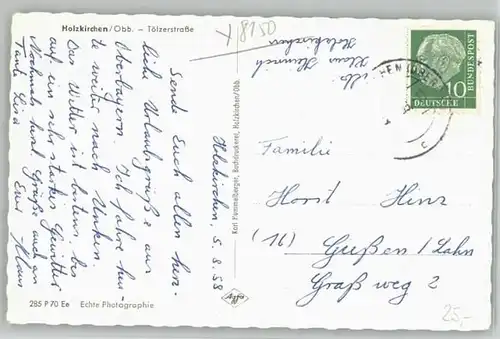 Holzkirchen/Obb. – Tölzerstraße
8150
Holzkirchen, 5.8.58
Sende Euch allen herz-
liche Urlaubsgrüße aus
Oberbayern. Ich fahre heu-
te weiter nach
Das Wetter ist bestens, bis
auf ein sehr starkes Gewitter
Nochmals herzl. Grüße auch an
Tante Lisa Euer Klaus
Abs.
Klaus Heinrich
Holzkirchen
Karl Pummelberger, Buchdruckerei, Holzkirchen/Obb.
Agfa
10
DEUTSCHE
BUNDESPOST
Familie
Horst Hinz
(16) Gießen / Lahn
Graßweg 2
25,-
285 P 70 Ee Echte Photographie